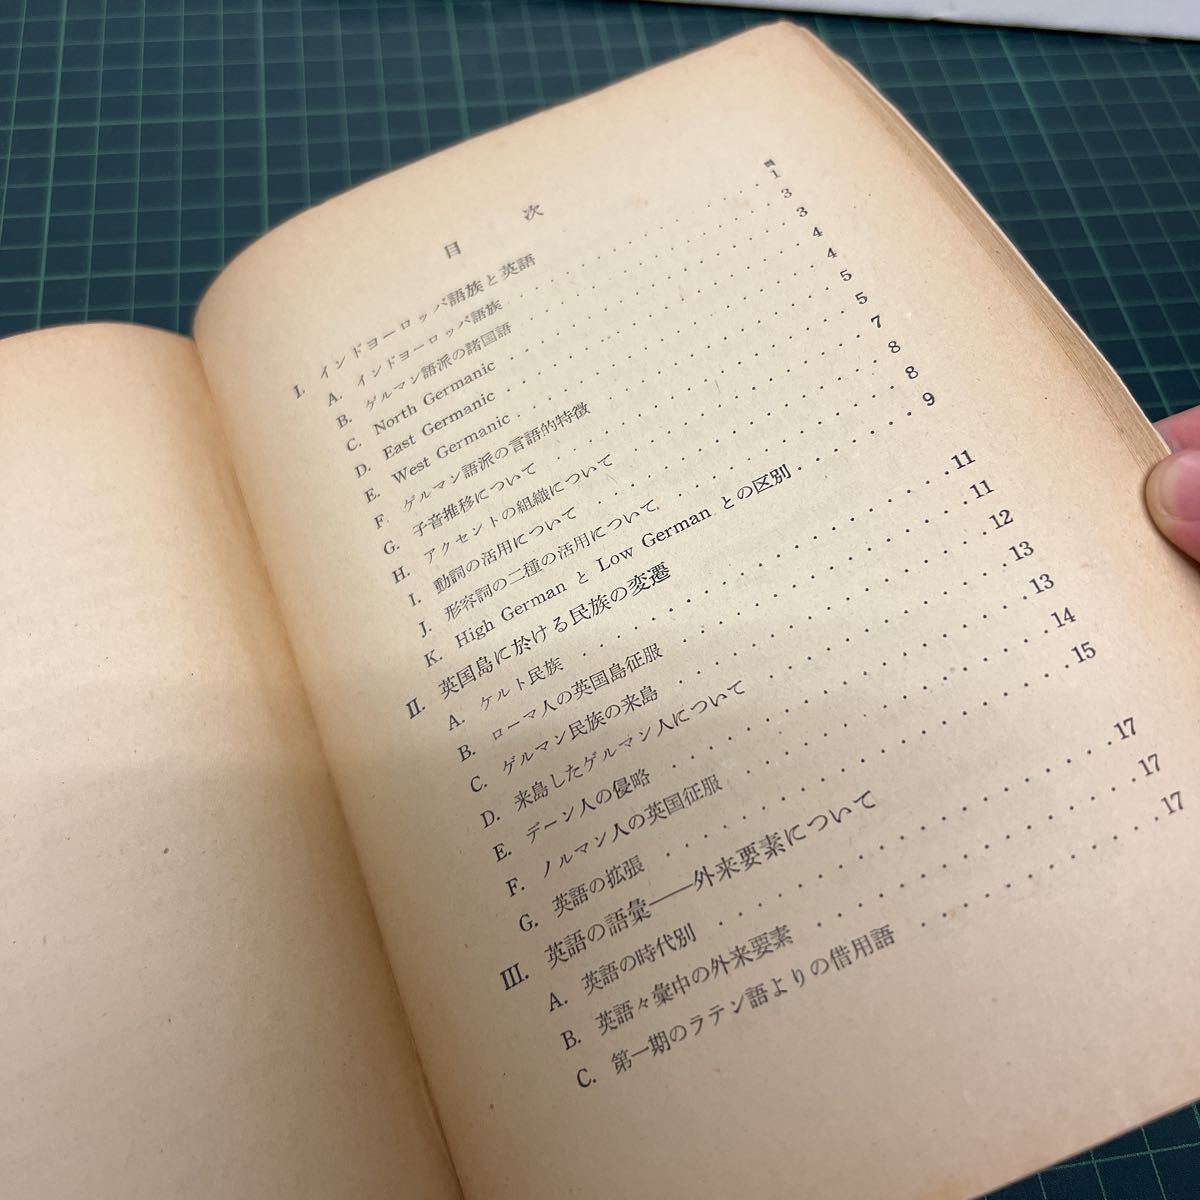 目次
頁
I. インドヨーロッパ語族と英語
A. インドヨーロッパ語族 . . . . . . . . . . 1
B. ゲルマン語派の諸国語 . . . . . . . . . . 3
C. North Germanic . . . . . . . . . . 3
D. East Germanic . . . . . . . . . . 4
E. West Germanic . . . . . . . . . . 4
F. ゲルマン語派の言語的特徴 . . . . . . . . . . 5
G. 子音推移について . . . . . . . . . . 5
H. アクセントの組織について . . . . . . . . . . 7
I. 動詞の活用について . . . . . . . . . . 8
J. 形容詞の二種の活用について . . . . . . . . . . 8
K. High German と Low German との区別 . . . . . 9
II. 英国島に於ける民族の変遷
A. ケルト民族 . . . . . . . . . . 11
B. ローマ人の英国島征服 . . . . . . . . . . 11
C. ゲルマン民族の来島 . . . . . . . . . . 12
D. 来島したゲルマン人について . . . . . . . . . . 13
E. デーン人の侵略 . . . . . . . . . . 13
F. ノルマン人の英国征服 . . . . . . . . . . 14
G. 英語の拡張 . . . . . . . . . . 15
III. 英語の語彙——外来要素について
A. 英語の時代別 . . . . . . . . . . 17
B. 英語々彙中の外来要素 . . . . . . . . . . 17
C. 第一期のラテン語よりの借用語 . . . . . . . . . . 17